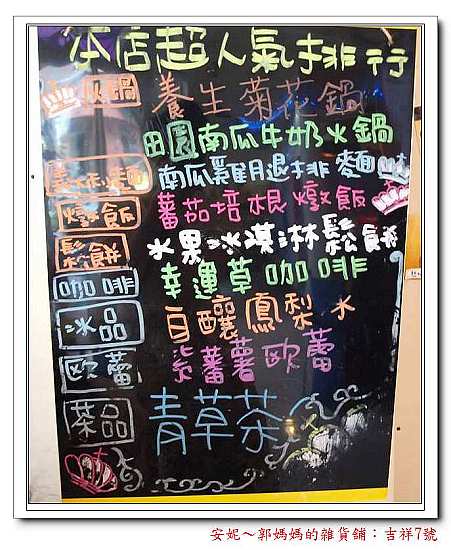 本店超人氣排行
火鍋 養生菊花鍋
田園南瓜牛奶火鍋
義大利麵 南瓜雞腿排麵
燉飯 蕃茄培根燉飯
鬆餅 水果冰淇淋鬆餅
咖啡 幸運草咖啡
冰品 自釀鳳梨冰
歐蕾 紫蕃薯歐蕾
茶品 青草茶
安妮～郭媽媽的雜貨舖：吉祥7號